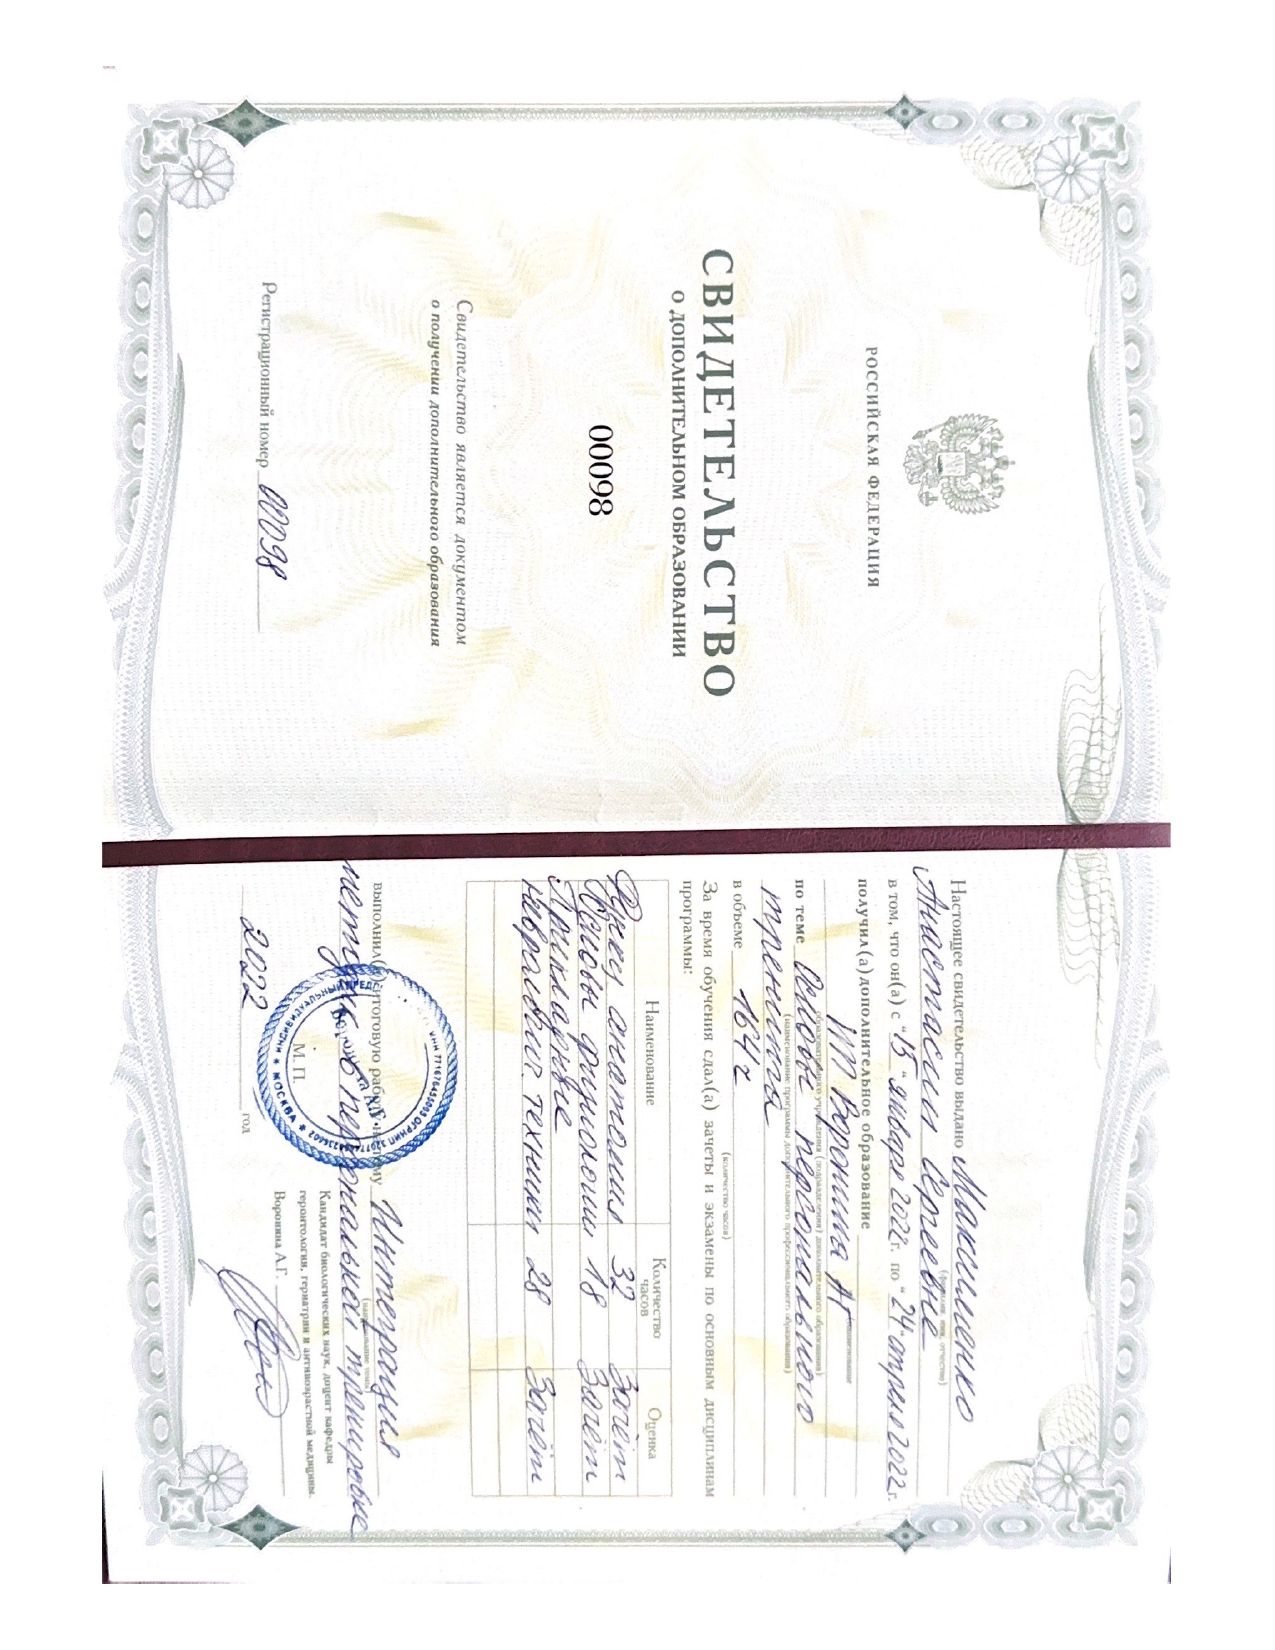 РОССИЙСКАЯ ФЕДЕРАЦИЯ
СВИДЕТЕЛЬСТВО
О ДОПОЛНИТЕЛЬНОМ ОБРАЗОВАНИИ
00098
Свидетельство является документом
о получении дополнительного образования
Регистрационный номер 00098
Настоящее свидетельство выдано Максименко
(фамилия, имя, отчество)
Анастасии Сергеевне
в том, что он(а) с "15" января 2022 г. по "24" апреля 2022 г.
получил(а) дополнительное образование
(наименование
ИП Воронина АГ
образовательного учреждения (подразделения) дополнительного образования)
по теме Основы персонального
(наименование программы дополнительного профессионального образования)
тренинга
в объеме 164 ч
(количество часов)
За время обучения сдал(а) зачеты и экзамены по основным дисциплинам
программы:
Наименование Количество часов Оценка
Функц анатомия 32 Зачёт
Основы физиологии 18 Зачёт
Прикладные
неврологич. техники 28 Зачёт
выполнил(а) итоговую работу на тему Интеграция
(наименование темы)
методик в персональной тренировке
Кандидат биологических наук, доцент кафедры
геронтологии, гериатрии и антивозрастной медицины.
Воронина А.Г.
М. П.
2022 год
Воронина А.Г.
ИНН 771676455095 ОГРНИП
★ МОСКВА ★